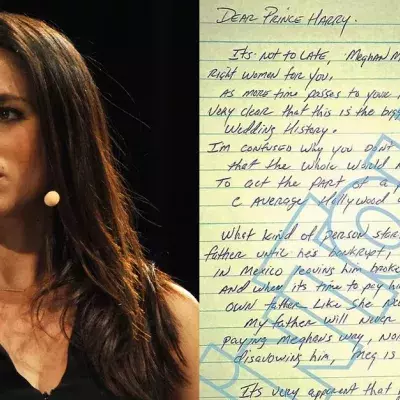 DEAR PRINCE HARRY.
ITS NOT TO LATE, MEGHAN M
RIGHT WOMEN FOR YOU.
AS MORE TIME PASSES TO YOUR
VERY CLEAR THAT THIS IS THE BIG
WEDDING HISTORY.
IM CONFUSED WHY YOU DON'T
THAT THE WHOLE WORLD
TO ACT THE PART OF A P
C AVERAGE HOLLYWOOD
WHAT KIND OF PERSON STAR
FATHER UNTIL HE'S BANKRUPT,
IN MEXICO LEAVING HIM BROKE
AND WHEN ITS TIME TO PAY H
OWN FATHER LIKE SHE NE
MY FATHER WILL NEVER
PAYING MEGHANS WAY, NOR
DISAVOWING HIM, MEG IS
ITS VERY APPARENT THAT